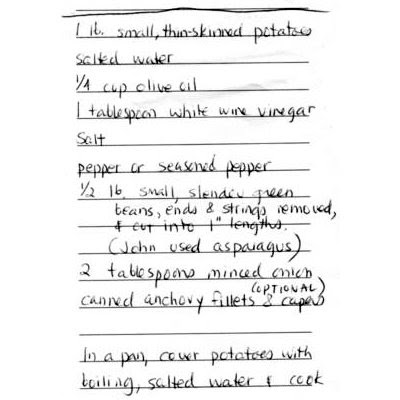 1 lb. small, thin-skinned potatoes
salted water
1/4 cup olive oil
1 tablespoon white wine vinegar
Salt
pepper or seasoned pepper
1/2 lb. small, slender green
beans, ends & strings removed,
& cut into 1" lengths.
(John used asparagus)
2 tablespoons minced onion
(OPTIONAL)
canned anchovy fillets & capers
In a pan, cover potatoes with
boiling, salted water & cook